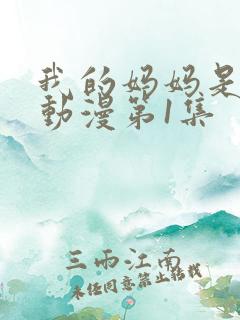 我的妈妈是
動漫第1集
三雨江南
未经同意禁止转载